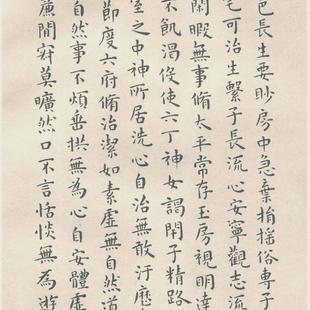 色長生要眇房中急棄捐搖俗專子
宅可治生繫子長流心安寧觀志流
閑暇無事脩太平常存玉房視明達
不飢渴伇使六丁神女謁閉子精路
室之中神所居洗心自治無敢汙歷
節度六府脩治潔如素虛無自然道
自然事不煩垂拱無為心自安體虛
廉閒寂莫曠然口不言恬惔無為遊